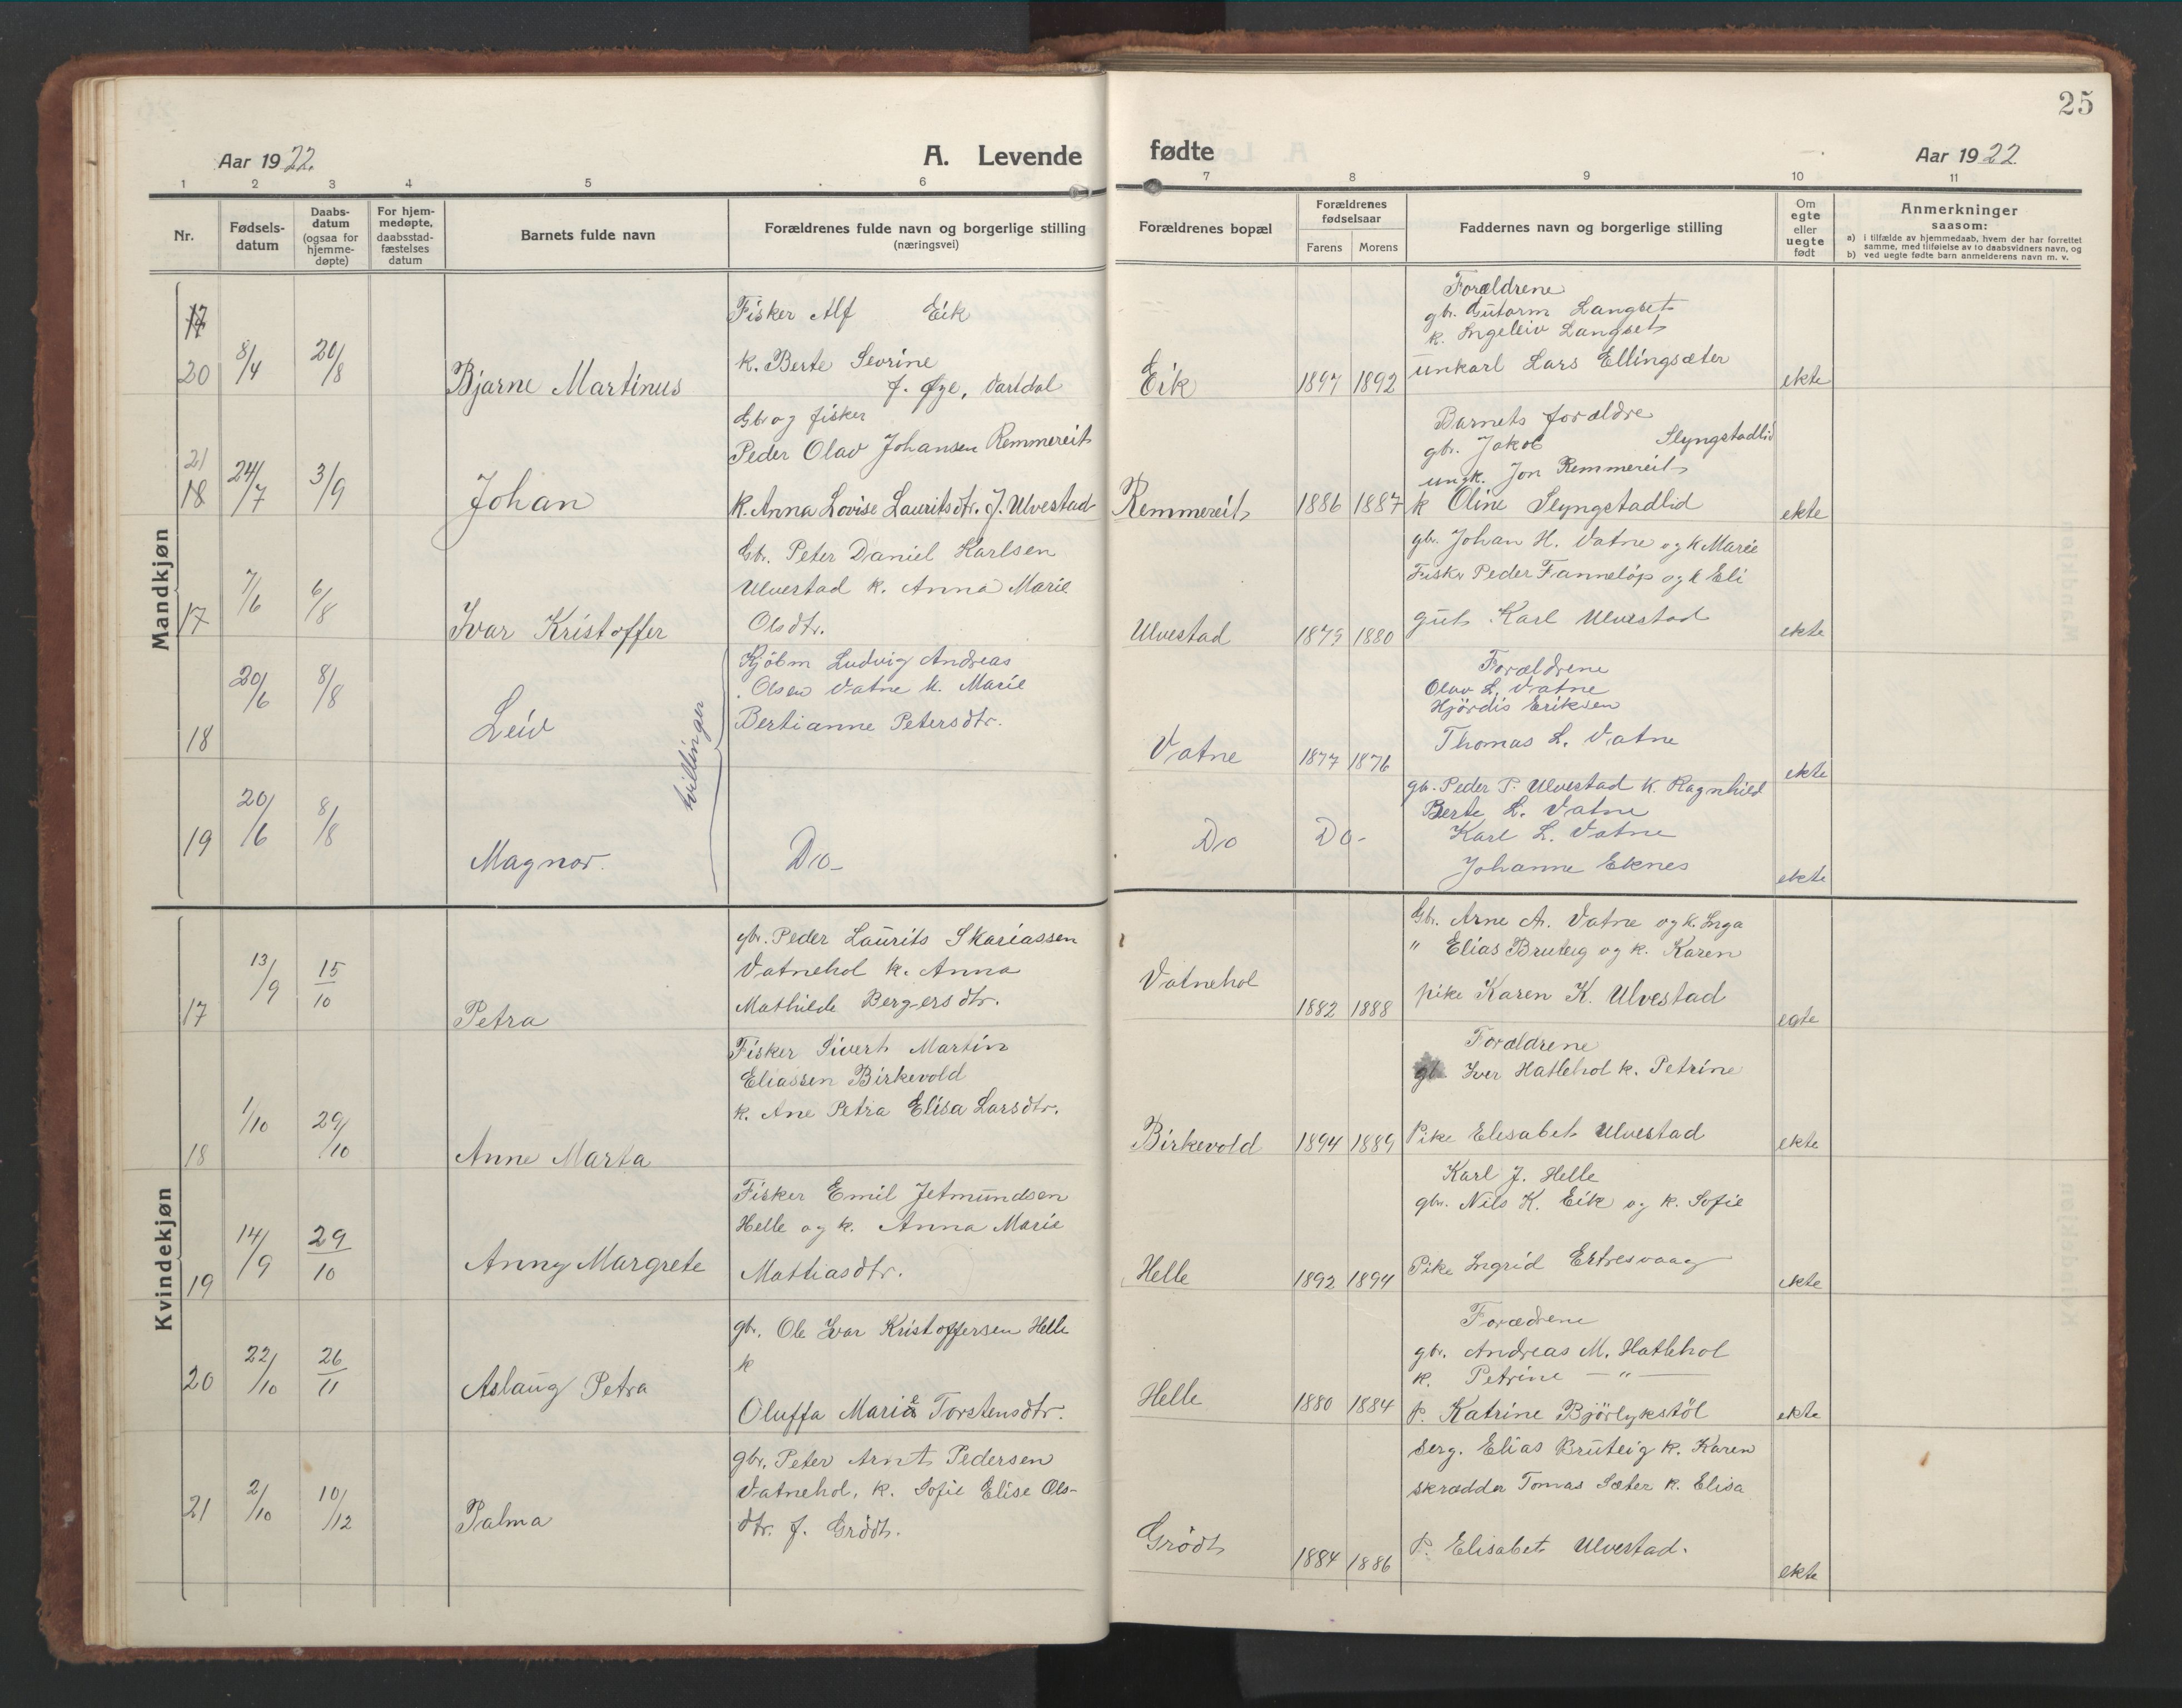 25
Aar 1922.
A. Levende
fødte
Aar 1922
1 2 3 4 5 6 7 8 9 10 11
Nr.
Fødsels-
datum
Daabs-
datum
(ogsaa for
hjemme-
døpte)
For hjem-
medøpte,
daabsstad-
fæstelses
datum
Barnets fulde navn
Forældrenes fulde navn og borgerlige stilling
(næringsvei)
Forældrenes bopæl
Forældrenes
fødselsaar
Farens Morens
Faddernes navn og borgerlige stilling
Om
egte
eller
uegte
født
Anmerkninger
saasom:
a) i tilfælde av hjemmedaab, hvem der har forrettet
samme, med tilføielse av to daabsvidners navn, og
b) ved uegte fødte barn anmelderens navn m. v.
Mandkjøn
17
20 8/4 20/8 Bjarne Martinus
Fisker Alf Eik
k. Berte Sevrine
f. Øye, Vartdal
Eik 1897 1892
Forældrene
gbr. Gutorm Langset
k. Ingeleiv Langset
unkarl Lars Ellingsæter
ekte
21
18 24/7 3/9 Johan
Gbr og fisker
Peder Olav Johansen Remmereit
k. Anna Lovise Lauritsdtr. f. Ulvestad
Remmereit 1886 1887
Barnets forældre
gbr. Jakob Slyngstadlid
ungk. Jon Remmereit
k Oline Slyngstadlid
ekte
17 7/6 6/8 Ivar Kristoffer
Gbr. Peter Daniel Karlsen
Ulvestad k. Anna Marie
Olsdtr.
Ulvestad 1879 1880
gbr. Johan H. Vatne og k Marie
Fisker Peder Fannelöp og k Eli
gut Karl Ulvestad
ekte
18 20/6 8/8 Leiv
tvillinger
Kjöbm Ludvig Andreas
Olsen Vatne k. Marie
Bertianne Petersdtr.
Vatne 1877 1876
Forældrene
Olav L. Vatne
Hjördis Eriksen
Thomas L. Vatne
ekte
19 20/6 8/8 Magnor.
Do-
Do Do-
gbr. Peder P. Ulvestad k. Ragnhild
Berte L. Vatne
Karl L. Vatne
Johanne Eknes
ekte
Kvindekjøn
17 13/9 15/10 Petra
gbr. Peder Laurits Skariassen
Vatnehol k. Anna
Mathilde Bergersdtr.
Vatnehol 1882 1888
Gbr. Arne A. Vatne og k. Inga
" Elias Bruteig og k. Karen
pike Karen K. Ulvestad
egte
18 1/10 29/10 Anne Marta
Fisker Sivert Martin
Eliassen Birkevold
k. Ane Petra Elisa Larsdtr.
Birkevold 1894 1889
Forældrene
gb. Iver Hatlehol k. Petrine
Pike Elesabet Ulvestad
ekte
19 14/9 29/10 Anny Margrete
Fisker Emil Jetmundsen
Helle og k. Anna Marie
Mattiasdtr.
Helle 1892 1894
Karl J. Helle
gbr. Nils K. Eik og k. Sofie
Pike Ingrid Ertresvaag
ekte
20 22/10 26/11 Aslaug Petra
gbr. Ole Ivar Kristoffersen Helle
k
Oluffa Marie Torstensdtr.
Helle 1880 1884
Forædrene
gbr. Andreas M. Hatlehol
k. Petrine — " —
P. Katrine Björlykstöl
ekte
21 2/10 10/12 Palma
gbr. Peter Arnt Pedersen
Vatnehol, k. Sofie Elise Ols-
dtr. f. Grödt.
Grödt 1884 1886
Serg. Elias Bruteig k. Karen
skrædder Tomas Sæter k. Elisa
P. Elisabet Ulvestad.
ekte